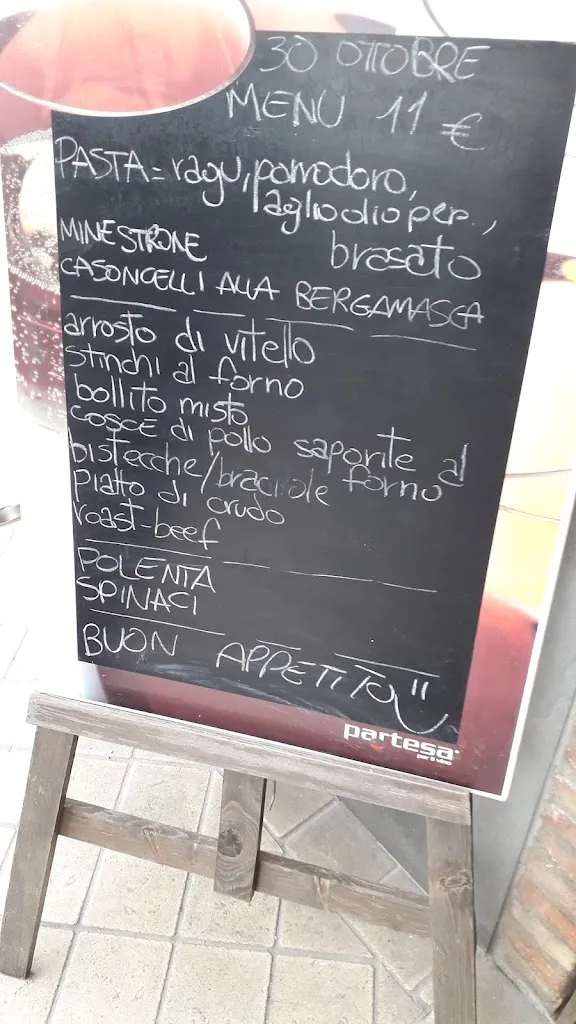 30 OTTOBRE
MENU 11 €
PASTA = ragu, pomodoro,
aglio olio pep.,
brasato
MINESTRONE
CASONCELLI ALLA BERGAMASCA
arrosto di vitello
stinchi al forno
bollito misto
cosce di pollo saporite al forno
bistecche/braciole
piatto di crudo
roast-beef
POLENTA
SPINACI
BUON APPETITO!!
partesa
per il vino